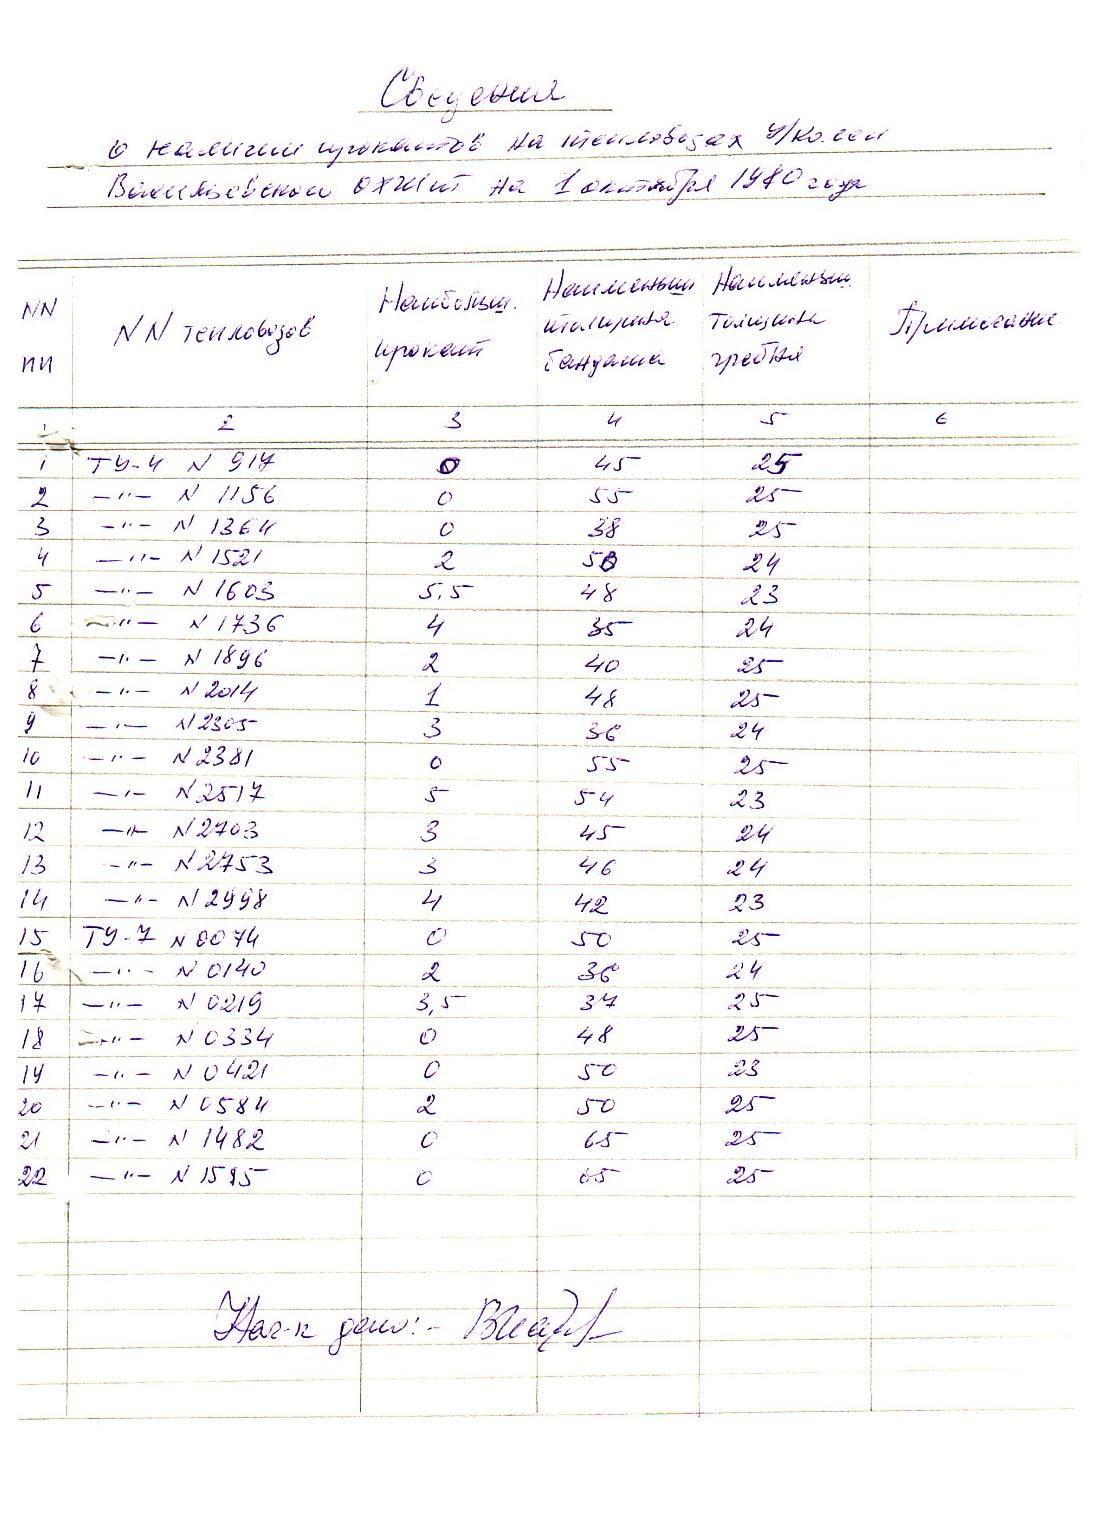 Сведения
о наличии прокатов на тепловозах у/колеи
Васильевской ОХЖПТ на 1 октября 1980 года
NN ПП NN тепловозов Наибольш. прокат Наименьш толщина бандажа Наименьш. толщина гребня Примечание
1 2 3 4 5 6
1 ТУ-4 N 917 0 45 25
2 —"— N 1156 0 55 25
3 —"— N 1364 0 38 25
4 —"— N 1521 2 50 24
5 —"— N 1603 5,5 48 23
6 —"— N 1736 4 35 24
7 —"— N 1896 2 40 25
8 —"— N 2014 1 48 25
9 —"— N 2305 3 36 24
10 —"— N 2381 0 55 25
11 —"— N 2517 5 54 23
12 —"— N 2703 3 45 24
13 —"— N 2753 3 46 24
14 —"— N 2998 4 42 23
15 ТУ-7 N 0074 0 50 25
16 —"— N 0140 2 36 24
17 —"— N 0219 3,5 37 25
18 —"— N 0334 0 48 25
19 —"— N 0421 0 50 23
20 —"— N 0584 2 50 25
21 —"— N 1482 0 65 25
22 —"— N 1595 0 65 25
Нач-к депо:-